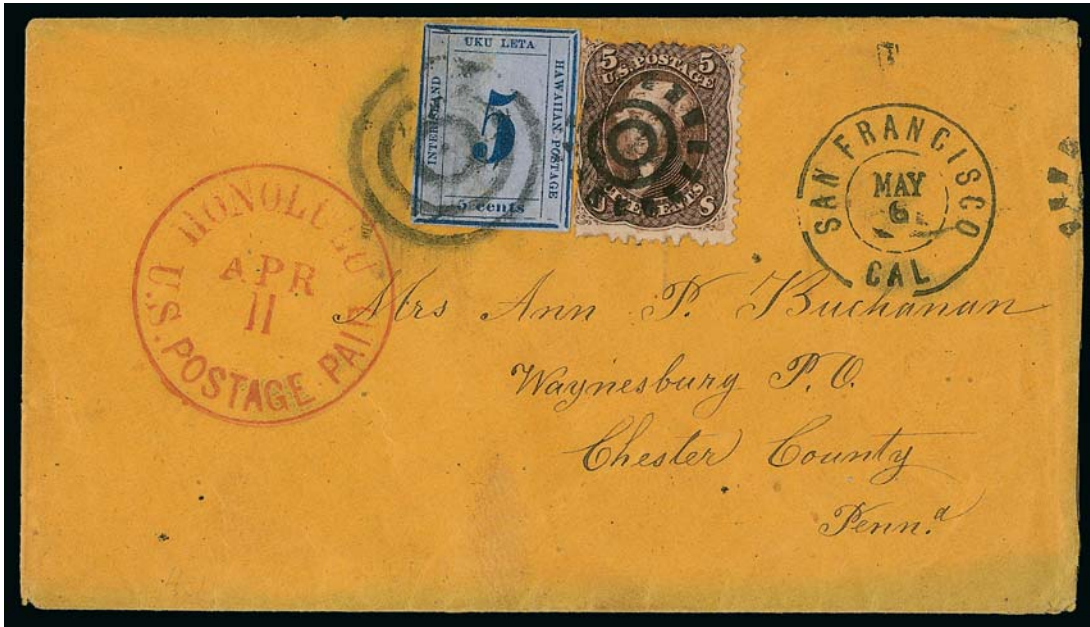 UKU LETA
INTERISLAND
5
HAWAIIAN POSTAGE
5 cents
5 5
U.S. POSTAGE
FIVE CENTS
SAN FRANCISCO
MAY
6
CAL
HONOLULU
APR
11
U.S. POSTAGE PAID
Mrs Ann P. Buchanan
Waynesburg P.O.
Chester County
Penn.a